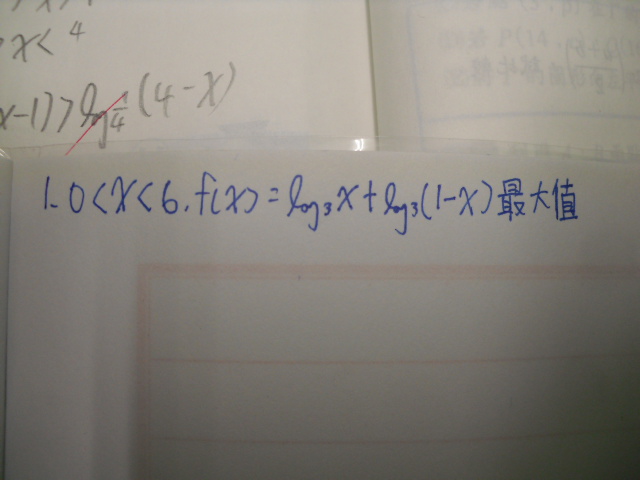 x < 4
x-1) > log 1/4 (4-x)
1. 0<x<6, f(x) = log₃x + log₃(1-x) 最大值